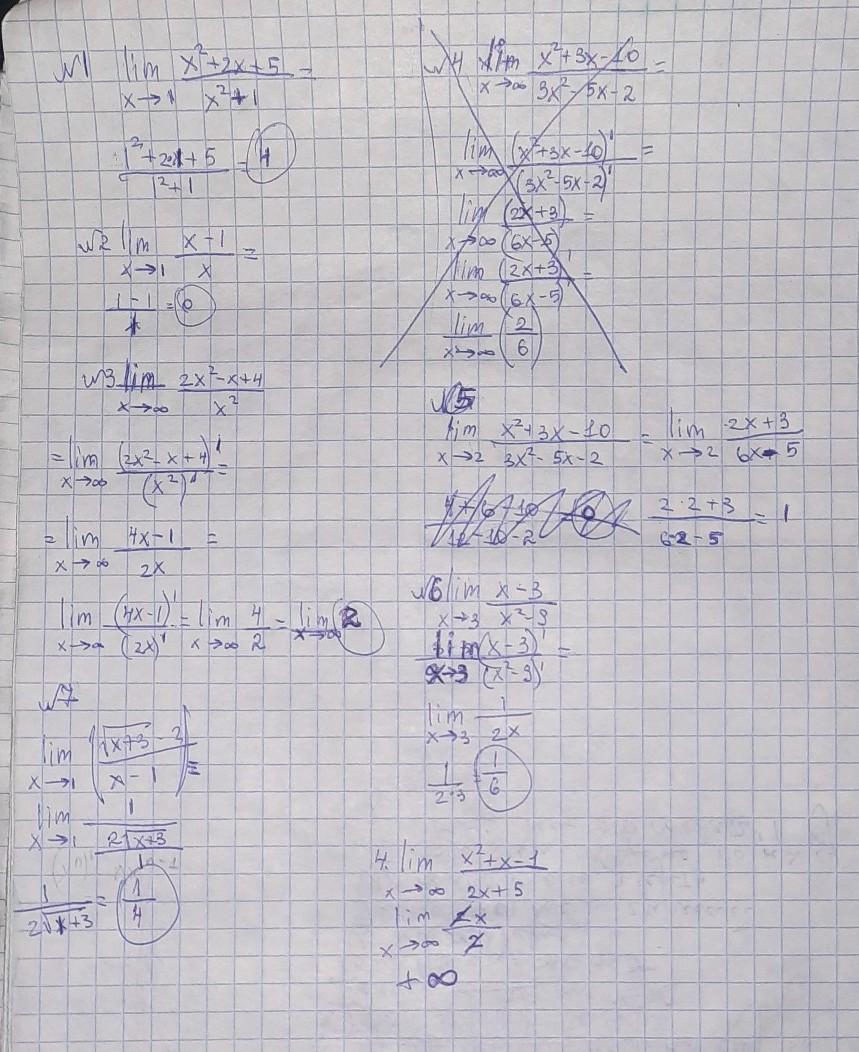 №1 lim x→1 (x²+2x+5)/(x²+1) =
(1²+2·1+5)/(1²+1) = 4
№2 lim x→1 (x-1)/x =
(1-1)/1 = 0
№3 lim x→∞ (2x²-x+4)/x²
= lim x→∞ (2x²-x+4)'/(x²)' =
= lim x→∞ (4x-1)/2x =
lim x→∞ (4x-1)'/(2x)' = lim x→∞ 4/2 = lim x→∞ 2
№7
lim x→1 ((√(x+3) - 2)/(x-1)) =
lim x→1 1/(2√(x+3))/1
1/(2√(1+3)) = 1/4
№4 lim x→∞ (x²+3x-10)/(3x²-5x-2) =
lim x→∞ (x²+3x-10)'/(3x²-5x-2)' =
lim x→∞ (2x+3)/(6x-5) =
lim x→∞ (2x+3)'/(6x-5)' =
lim x→∞ (2/6)
№5
lim x→2 (x²+3x-10)/(3x²-5x-2) = lim x→2 (2x+3)/(6x-5)
(2·2+3)/(6·2-5) = 1
№6 lim x→3 (x-3)/(x²-9)
lim x→3 (x-3)'/(x²-9)' =
lim x→3 1/2x
1/(2·3) = 1/6
4. lim x→∞ (x²+x-1)/(2x+5)
lim x→∞ 2x/2
+∞